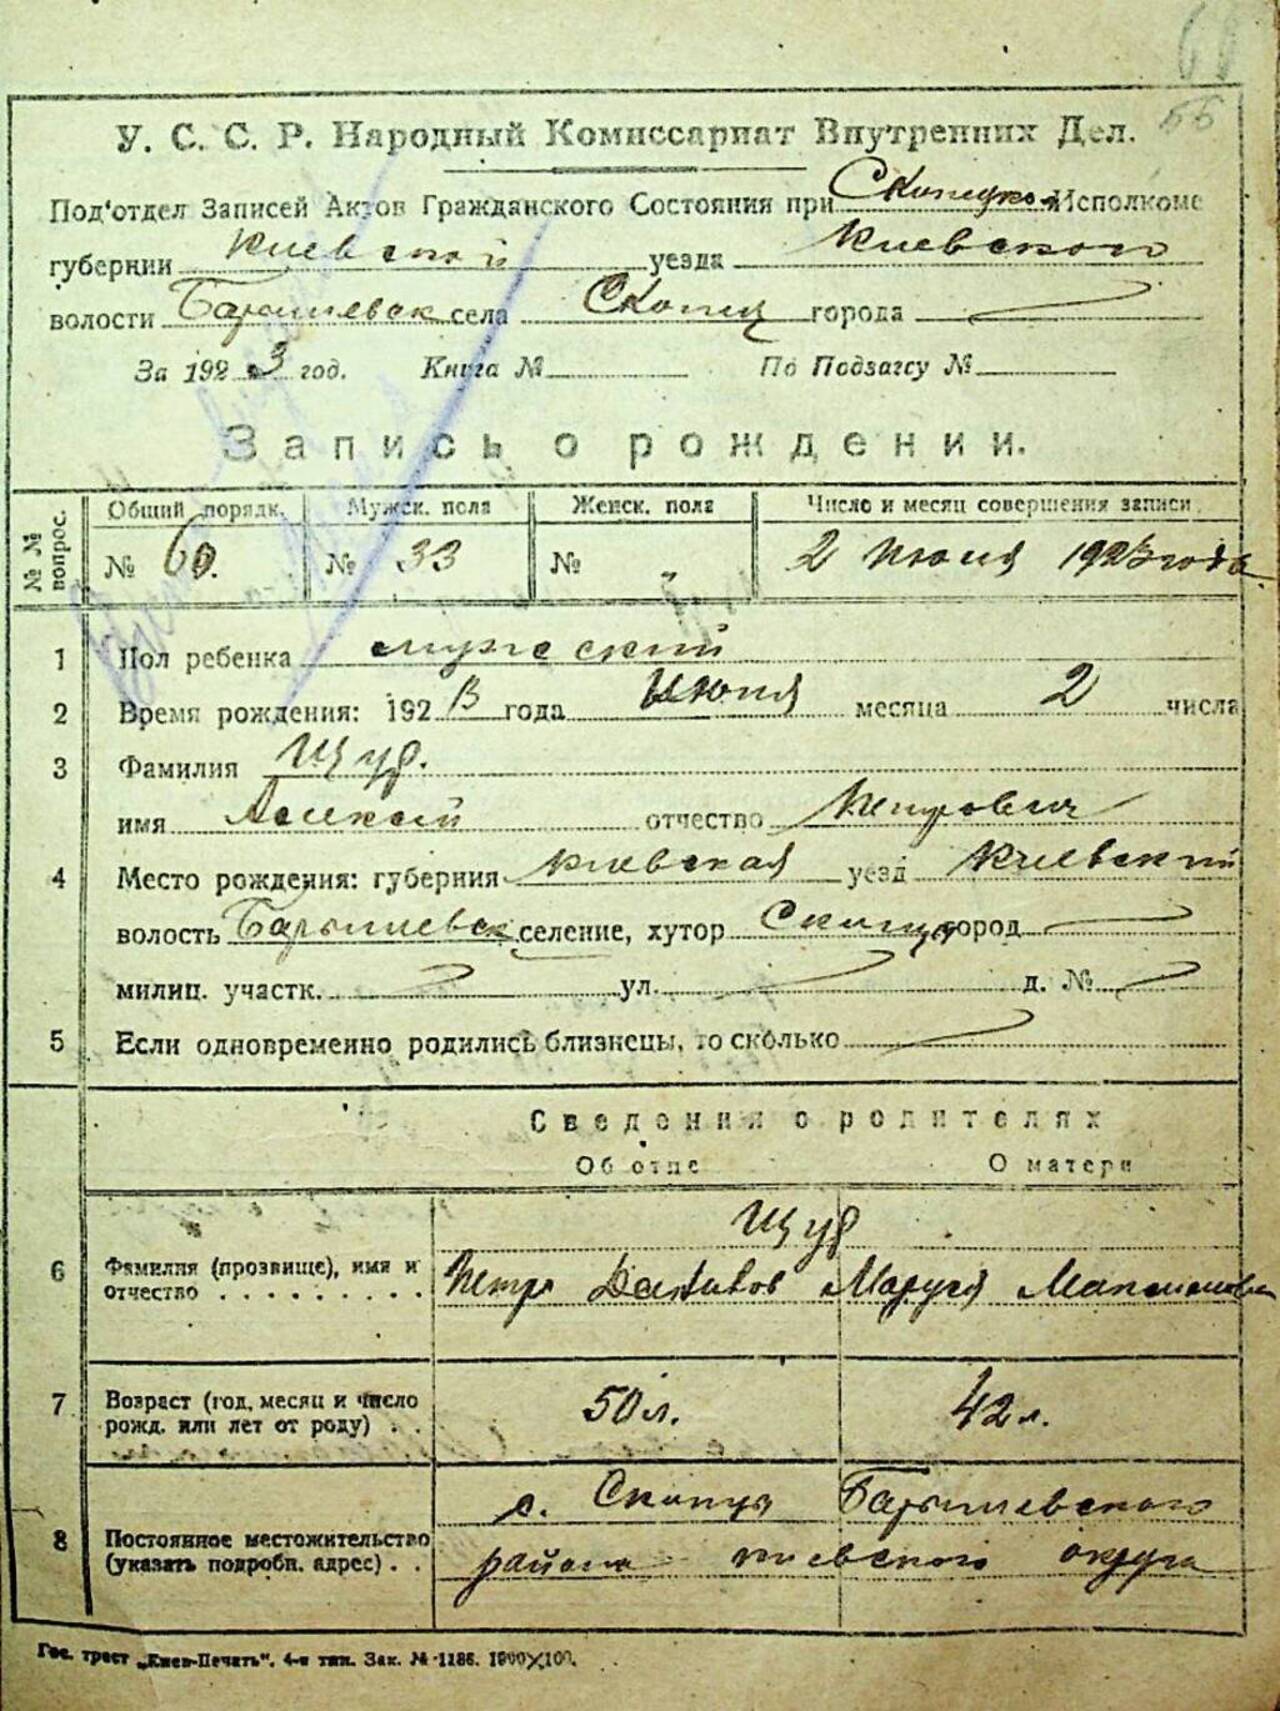 66
У. С. С. Р. Народный Комиссариат Внутренних Дел.
Под'отдел Записей Актов Гражданского Состояния при Скопецком Исполкоме
губернии Киевской уезда Киевского
волости Барышевск села Скопец города
За 1923 год. Книга № По Подзагсу №
Запись о рождении.
№ № вопрос. Общий порядк. Мужск. пола Женск. пола Число и месяц совершения записи
№ 60. № 33 № „ 2 Июня 1923 года
1 Пол ребенка мужеский
2 Время рождения: 1923 года Июня месяца 2 числа
3 Фамилия Щур.
имя Алексей отчество Петрович
4 Место рождения: губерния Киевская уезд Киевский
волость Барышевск селение, хутор Скопцы город
милиц. участк. ул. д. №
5 Если одновременно родились близнецы, то сколько
Сведения о родителях
Об отце О матери
Щур
6 Фамилия (прозвище), имя и отчество . . . . . . . . . Петро Маруся
7 Возраст (год, месяц и число рожд. или лет от роду) . . 50 л. 42 л.
с. Скопцы Барышевского
8 Постоянное местожительство (указать подробн. адрес) . . района киевского округа
Гос. трест „Киев-Печать". 4-я тип. Зак. № 1186. 1000×100.